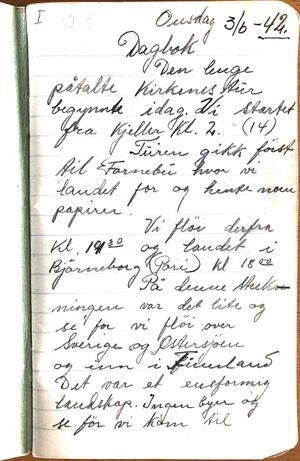 I
Onsdag 3/6-42.
Dagbok
Den lenge
påtalte Kirkenes tur
begynnte idag. Vi startet
fra Kjeller Kl. 2. (14)
Turen gikk først
til Fornebu hvor vi
landet for og hente noen
papirer.
Vi flöi derfra
Kl. 14 30 og landet i
Bjørneborg (Pori) kl 18 00
På denne strek-
ningen var det lite og
se for vi flöi over
Sverige og Østersjøen
og inn i Finnland
Det var et ensformig
landskap. Ingen byer og
se för vi kom til